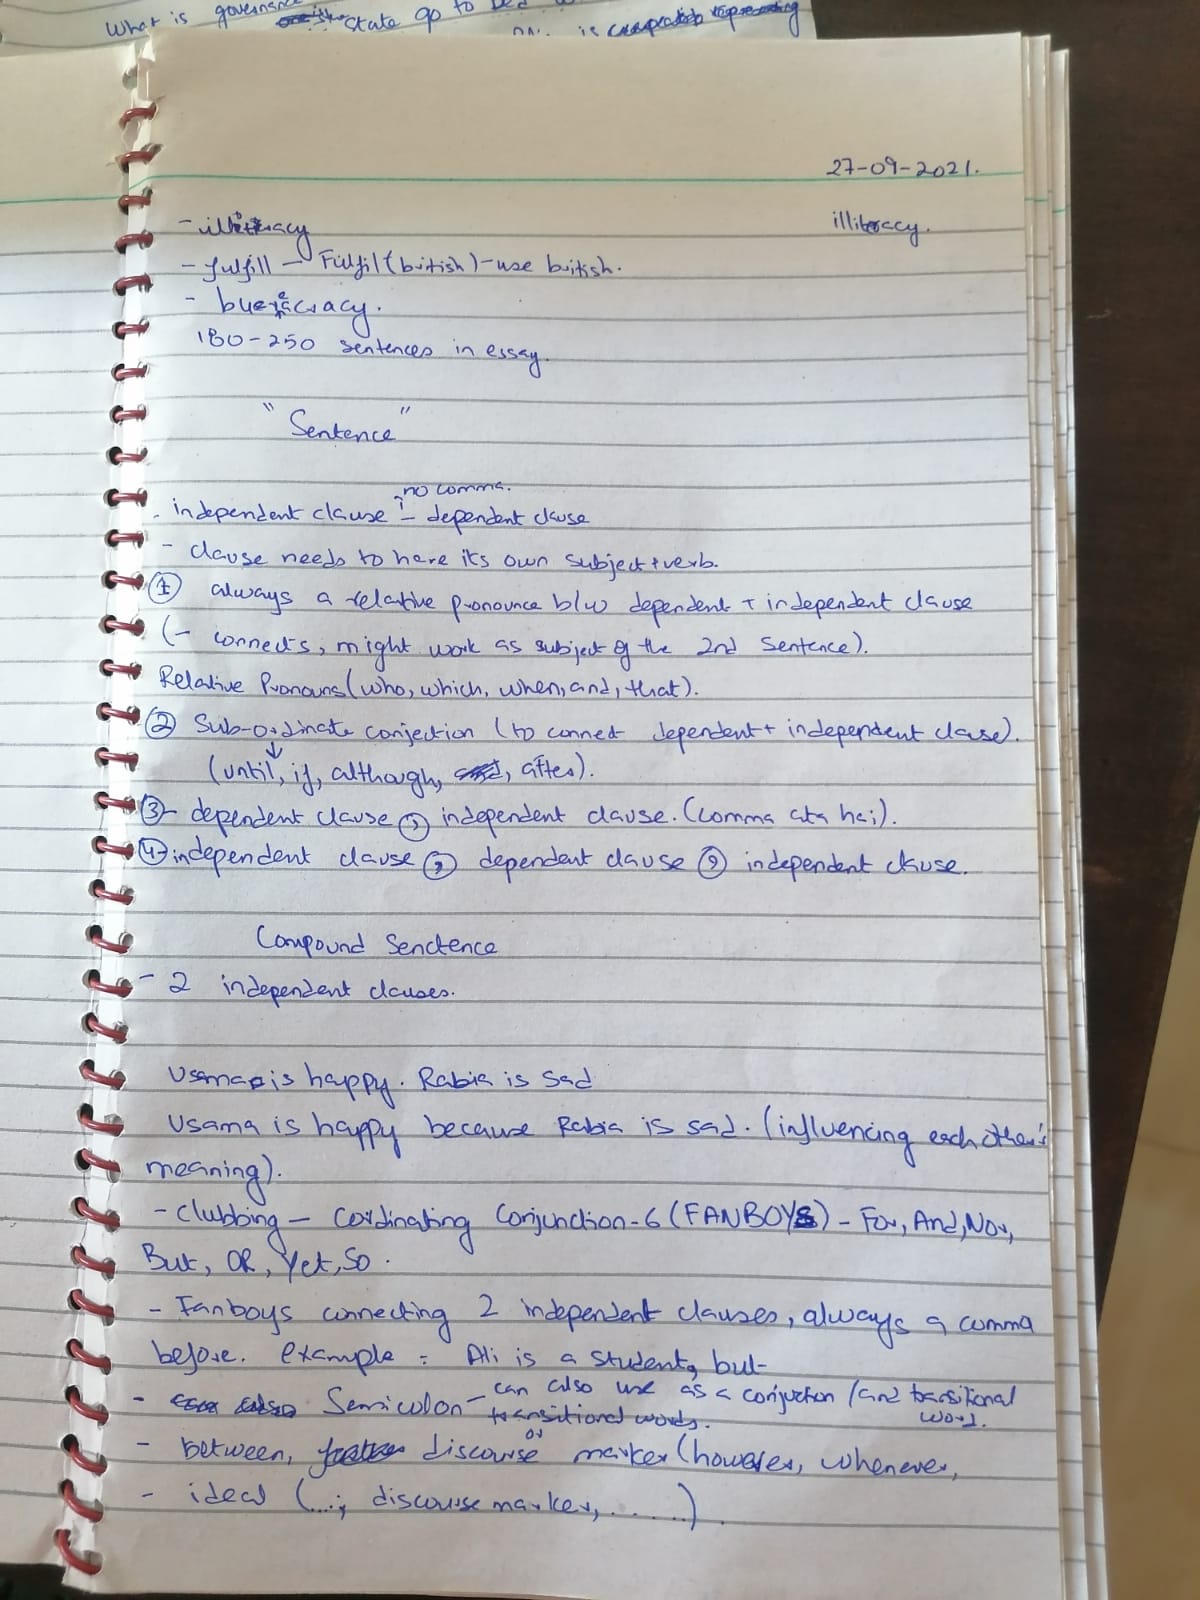 What is state go to
is
27-09-2021.
- illiteracy illiteracy.
- fulfill - Fulfil (british) - use british.
-
180-250 sentences in essay.
"Sentence"
no comma.
- independent clause - dependent clause
- clause needs to have its own subject + verb.
1 always a relative pronounce b/w dependent + independent clause
(- connects, might work as subject of the 2nd sentence).
Relative Pronouns (who, which, when, and, that).
2 Sub-ordinate conjection (to connect dependent + independent clause).
(until, if, although, after).
3- dependent clause , independent clause. (comma ata hai).
4- independent clause , dependent clause , independent clause.
Compound Senctence
- 2 independent clauses.
Usama is happy. Rabia is sad
Usama is happy because Rabia is sad. (influencing each other's
meaning).
- Clubbing - Cordinating Conjunction - 6 (FANBOYS) - For, And, Nor,
But, OR, Yet, So.
- Fanboys connecting 2 independent clauses, always a comma
before. example = Ali is a student, but-
- Semicolon - can also use as a conjuction / (and transitional
transitional words. word.
or
- between, discourse marker (however, whenever,
- ideal (...; discourse marker, ......).